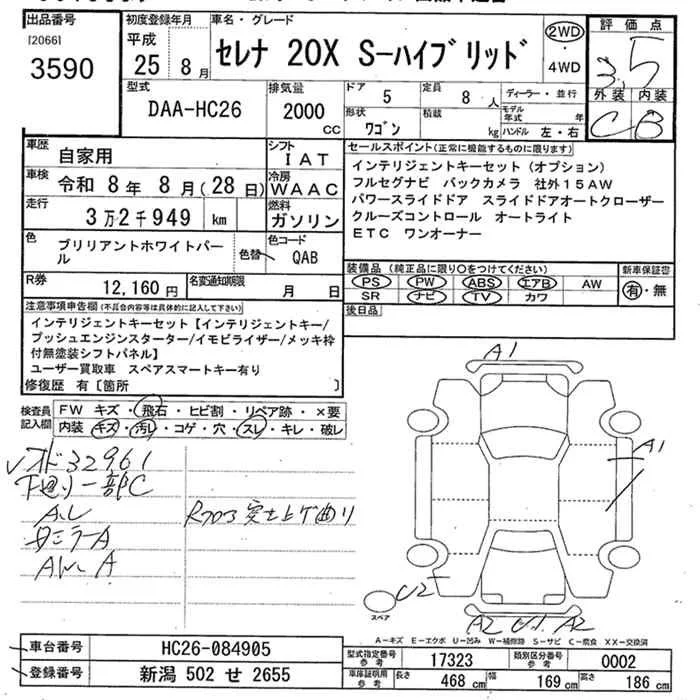 出品番号
[2066]
3590
初度登録年月
平成
25年 8月
車名・グレード
セレナ 20X S-ハイブリッド
2WD
・
4WD
評価点
3.5
外装 内装
C B
型式
DAA-HC26
排気量
2000
cc
ドア
5
定員
8 人
ディーラー・並行
形状
ワゴン
積載
kg
モデル年式 年
ハンドル 左・右
車歴
自家用
シフト
IAT
車検
令和 8年 8月(28日)
冷房
WAAC
走行
3万2千949 km
燃料
ガソリン
色
ブリリアントホワイトパール
色替
色コード
QAB
R券
12,160円
名変通知期限
月 日
セールスポイント(正常に機能するものに限ります)
インテリジェントキーセット (オプション)
フルセグナビ バックカメラ 社外15AW
パワースライドドア スライドドアオートクローザー
クルーズコントロール オートライト
ETC ワンオーナー
装備品 (純正品に限り○をつけてください)
新車保証書
PS PW ABS エアB AW
SR ナビ TV カワ
有・無
後日品
注意事項申告欄(不具合内容等は具体的に記入して下さい)
インテリジェントキーセット【インテリジェントキー/
プッシュエンジンスターター/イモビライザー/メッキ枠
付無塗装シフトパネル】
ユーザー買取車 スペアスマートキー有り
修復歴 有〔箇所 〕
検査員記入欄
FW キズ・飛石・ヒビ割・リペア跡・×要
内装 キズ・汚レ・コゲ・穴・スレ・キレ・破レ
32961
下廻り一部C
ミラーA
突き上げ曲り
A1
A1
U2
A2 U1 A2
スペア
A-キズ E-エクボ U-凹み W-補修跡 S-サビ C-腐食 XX-交換済
車台番号
HC26-084905
登録番号
新潟 502 せ 2655
型式指定番号
参考
17323
類別区分番号
参考
0002
車庫証明用
参考
長さ
468 cm
幅
169 cm
高さ
186 cm